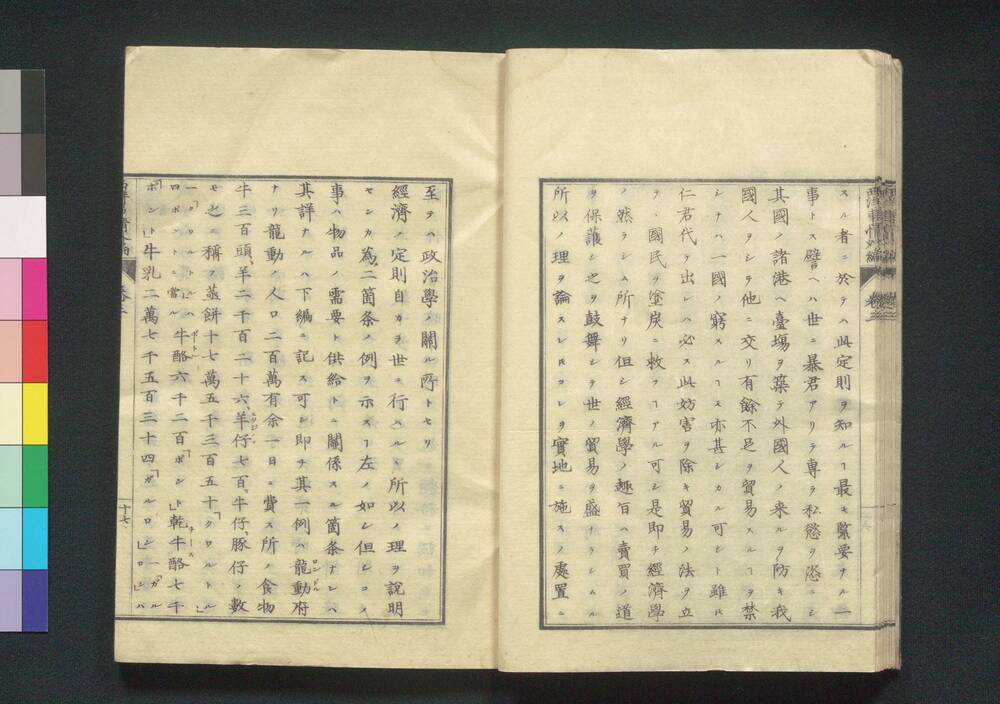 スル者ニ於テハ此定則ヲ知ルヿ最モ緊要ナル一
事トス譬ヘハ世ニ暴君アリテ專ラ私慾ヲ恣ニシ
其國ノ諸港ヘ臺塲ヲ築テ外國人ノ来ルヲ防キ我
國人ヲシテ他ニ交リ有餘不足ヲ貿易スルヿヲ禁
シナハ一國ノ窮スルヿモ亦甚シカル可シト雖𪜈
仁君代テ出レハ必ス此妨害ヲ除キ貿易ノ法ヲ立
テ國民ヲ塗炭ニ救フヿアル可シ是即チ經濟學
ノ然ラシム所ナリ但シ經濟學ノ趣旨ハ賣買ノ道
ヲ保護シ之ヲ鼓舞シテ世ノ貿易ヲ盛ナラシムル
所以ノ理ヲ論スレ𪜈コレヲ實地ニ施スノ處置ニ
至テハ政治學ノ關ル所トセリ
經濟ノ定則自カラ世ニ行ハルヽ所以ノ理ヲ說明
センカ為二箇条ノ例ヲ示スヿ左ノ如シ但シコノ
事ハ物品ノ需要ト供給トニ關係スル箇条ナレハ
其詳ナルハ下編ニ記ス可シ即チ其一例ハ龍動府
ロンドル
ナリ龍動ノ人口二百萬有余一日ニ費ス所ノ食物
牛三百頭、羊二千百二十六、羊仔七百、牛仔、豚仔ノ數
モ之ニ稱フ蒸餅十七萬五千三百五十「クワルトル」
一「クワルトル」ハ
四ポントニ當ル
牛酪六千二百「ポント」乾牛酪七千
チース
「ポント」牛乳二萬七千五百三十四「ガルロン」一「ガルロン」ハ
卷三
十七